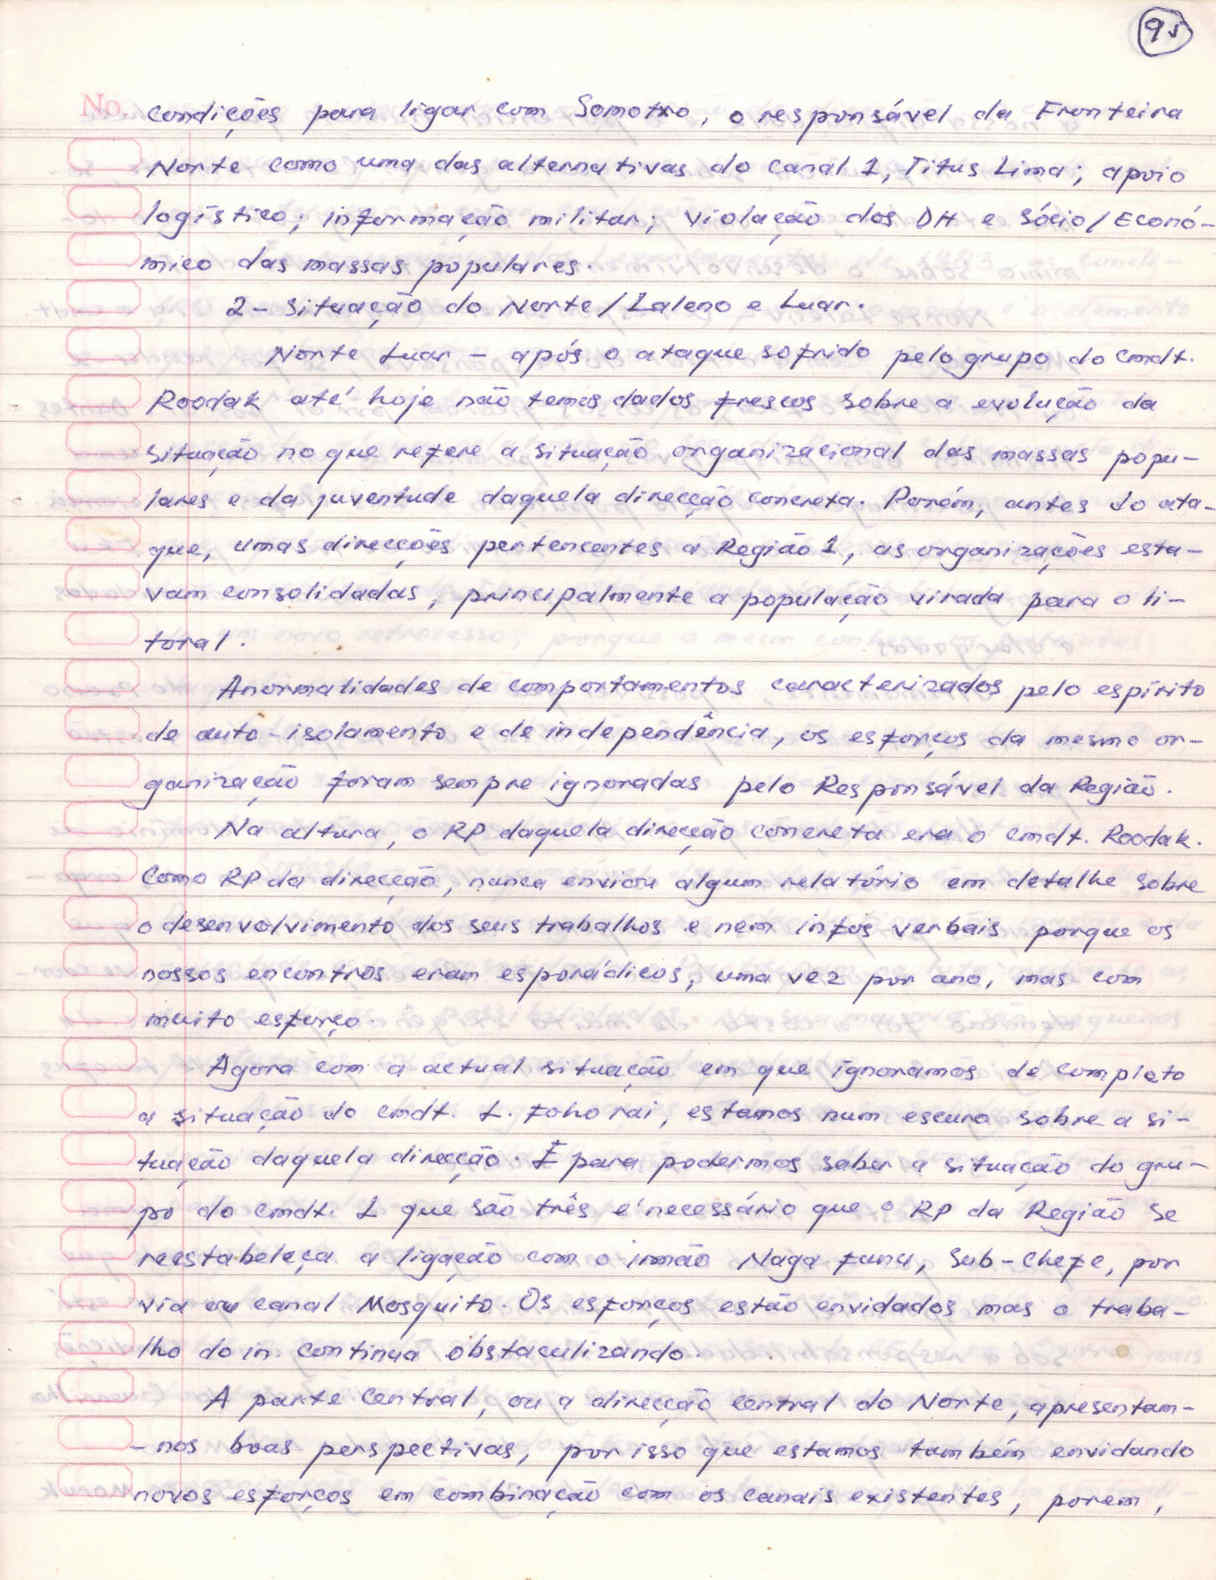 95
No. condições para ligar com Somotxo, o responsável da Fronteira
Norte como uma das alternativas do canal 1, Titus Lima; apoio
logístico; informação militar; violação dos DH e Sócio/Econó-
mico das massas populares.
2- Situação do Norte/Laleno e Luar.
Norte Luar - após o ataque sofrido pelo grupo do Cmdt.
Roodak até hoje não temos dados frescos sobre a evolução da
situação no que refere a situação organizacional das massas popu-
lares e da juventude daquela direcção concreta. Porém, antes do ata-
que, umas direcções pertencentes a Região 1, as organizações esta-
vam consolidadas, principalmente a população virada para o li-
toral.
Anormalidades de comportamentos caracterizados pelo espírito
de auto-isolamento e de independência, os esforços da mesma or-
ganização foram sempre ignoradas pelo Responsável da Região.
Na altura, o RP daquela direcção concreta era o cmdt. Roodak.
Como RP da direcção, nunca enviou algum relatório em detalhe sobre
o desenvolvimento dos seus trabalhos e nem infos verbais porque os
nossos encontros eram esporádicos, uma vez por ano, mas com
muito esforço.
Agora com a actual situação em que ignoramos de completo
a situação do cmdt. L. Foho rai, estamos num escuro sobre a si-
tuação daquela direcção. E para podermos saber a situação do gru-
po do cmdt. L que são três é necessário que o RP da Região se
reestabeleça a ligação com o irmão Naga funu, Sub-Chefe, por
via ou canal Mosquito. Os esforços estão envidados mas o traba-
lho do in. continua obstaculizando.
A parte Central, ou a direcção central do Norte, apresentam-
-nos boas perspectivas, por isso que estamos também envidando
novos esforços em combinação com os canais existentes, porém,